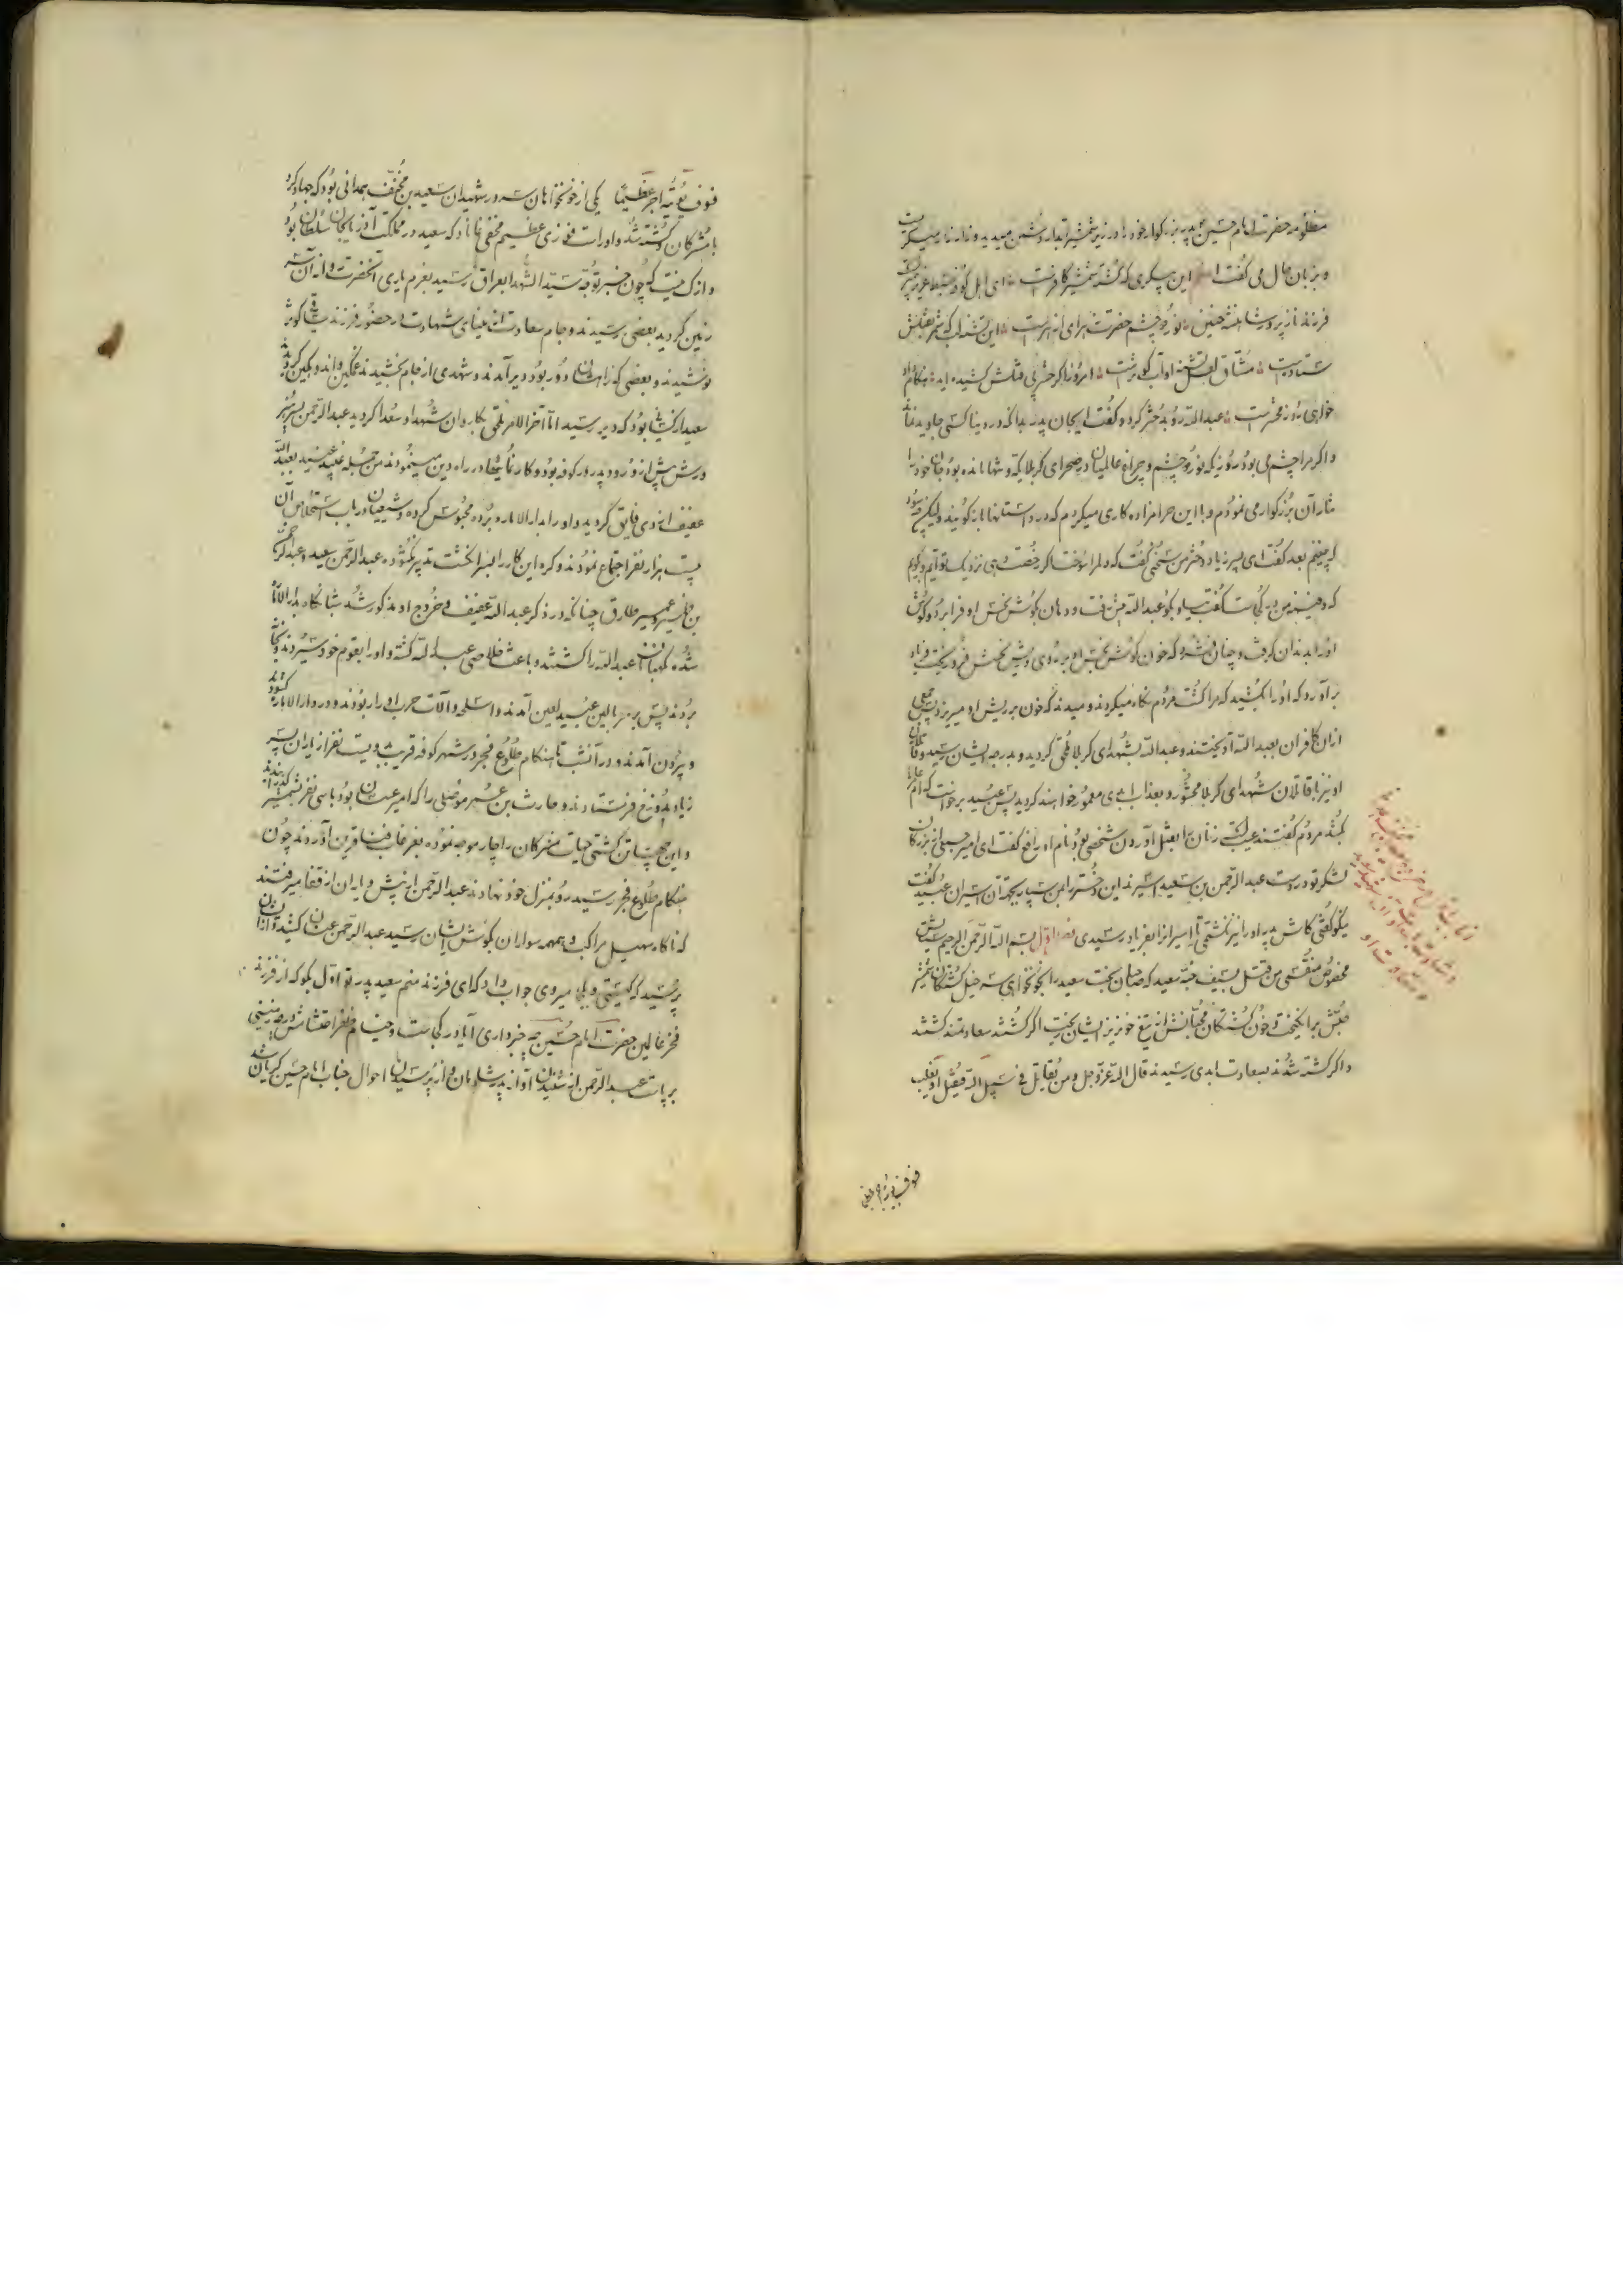 مظلومه حضرت امام حسین پدر بزرگوار خود را در زیر شمشیر آبدار دشمن میدید و زار زار میگریست
و بزبان حال می گفت این پیکری که کشته شمشیر کافرست ای اهل کوفه سبط عزیز پیمبرست
فرزند نازپرور شاهنشه حنین نور دو چشم حضرت زهرای ازهرست این تشنه لب که شمر بقتلش
ستاده است مشتاق لعل تشنه او آب کوثرست امروز اگر خنجر قتلش کشیده اید هنگام داد
خواهی روز محشرست عبدالله رو بدختر کرد و گفت ایجان پدر بدانکه در دنیا کسی جاوید نماند
و اگر مرا چشم می بود روزیکه نور دو چشم و چراغ عالمیان در صحرای کربلا یکه و تنها مانده بود جان خود را
نثار آن بزرگوار می نمودم و با این حرامزاده کاری میکردم که در داستانها باز گویند ولیکن چه سود
که بینم بعد گفت ای پسر زیاد دختر من سخنی گفت که دلم را سوخت اگر رخصت دهی نزدیک تو آیم و گویم
که دفینه من در کجاست گفت بیا و بگو عبدالله پیش رفت و دهان بگوش نحس او فرا برد و گوش
او را بدندان گرفت و چنان فشرد که خون گوش نحس او بر روی و ریش نحسش فرو ریخت فریاد
برآورد که او را بکشید که مرا کشت مردم نگاه میکردند و میدیدند که خون بر ریش او میریزد پس جمعی
از آن کافران بعبدالله آویختند و عبدالله بشهدای کربلا ملحق گردید و بدرجه ایشان رسید و قاتلان
او نیز با قاتلان شهدای کربلا محشور و بعذاب ابدی معمور خواهند گردید پس عبید برخواست که ام عامر را
بکشد مردم گفتند عیب است زنان را بقتل آوردن شخصی بود نام او رافع گفت ای امیر جمعی از بزرگان
لشکر تو در دست عبدالرحمن بن سعید اسیرند این دختر را بمن سپار بجهة آن اسیران عبید گفت
نیکو گفتی کاش پدر او را نیز نکشتمی تا اسیران را بفریاد رسیدی فصل اول بسم الله الرحمن الرحیم ستایش
مخصوص منتقمی
من قتل بسیف حبه سعید که صاحبان بخت سعید را بخونخواهی سرخیل کشتگان شمشیر
حبش برانگیخت و خون کشتگان محبانش از تیغ خونریز ایشان بریخت اگر کشتند سعادتمند گشتند
و اگر کشته شدند بسعادت ابدی رسیدند قال الله عز و جل و من یقاتل فی سبیل الله فیقتل او یغلب
فسوف نؤتیه اجرا عظیما
فسوف نؤتیه اجرا عظیما یکی از خونخواهان سرور شهیدان سعید بن مخنف همدانی بود که جهاد کرد
با مشرکان کشته شد و او راست فوزی عظیم مخفی نماناد که سعید در مملکت آذربایجان سلطان بود
و از کیفیت که چون خبر توجه سید الشهدا بعراق رسید بعزم یاری آنحضرت روانه آن سر
زمین گردید بعضی رسیدند و جام سعادت از مینای شهادت در حضور فرزند ساقی کوثر
نوشیدند و بعضی که راه ایشان دور بود دیر آمدند و شهدی از جام نچشیدند غمگین و اندوهگین گردیدند
سعید از کسانی بود که دیر رسید اما آخر الامر ملحق بکاروان شهدا و سعدا گردید عبدالرحمن پسر هنر
ورش پیش از ورود پدر در کوفه بود و کار نمایان در راه دین مینمود من جمله عبید بعبدالله
عفیف ازدی فایق گردید و او را بدارالاماره برده محبوس کرده و شیعیان در باب استخلاص آن
بیست هزار نفر اجتماع نمودند و گره این کار را بسرانگشت تدبیر نگشوده عبدالرحمن سعید و عبدالرحمن
بن عمیر و عمیر طارق چنانکه در ذکر عبدالله عفیف و خروج او مذکور شد شبانگاه بدارالاماره
شده نگهبانان عبدالله را کشتند و باعث خلاصی عبدالله گشته و او را بقوم خود سپردند و بخانه
بردند پس بر سر بالین عبید لعین آمدند و اسلحه و آلات حرب او را ربودند و در دارالاماره گشودند
و بیرون آمدند و در آنشب تا هنگام طلوع فجر در شهر کوفه قریب دویست نفر از یاران پسر
زیاد بدوزخ فرستادند و حارث بن عمر موصلی را که امیر عسس بود با سی نفر بشمشیر گذرانیدند
و این جمعیت کشتی حیات مشرکان را چار موجه نموده بغرقاب فنا قرین آوردند چون
هنگام طلوع فجر رسید رو بمنزل خود نهادند عبدالرحمن از پیش و یاران از قفا میرفتند
که ناگاه صهیل مراکب و همهمه سواران بگوش ایشان رسید عبدالرحمن عنان کشید و از ایشان
پرسید که کیستی و بکجا میروی جواب داد که ای فرزند منم سعید پدر تو اول بگو که از فرزند
فخر عالمین حضرت امام حسین چه خبر داری آیا در کجاست و خیام ظفر احتشامش در چه زمینی
برپاست عبدالرحمن از شنیدن آواز پدر شادمان و از پرسیدن احوال جناب امام حسین گریان شد